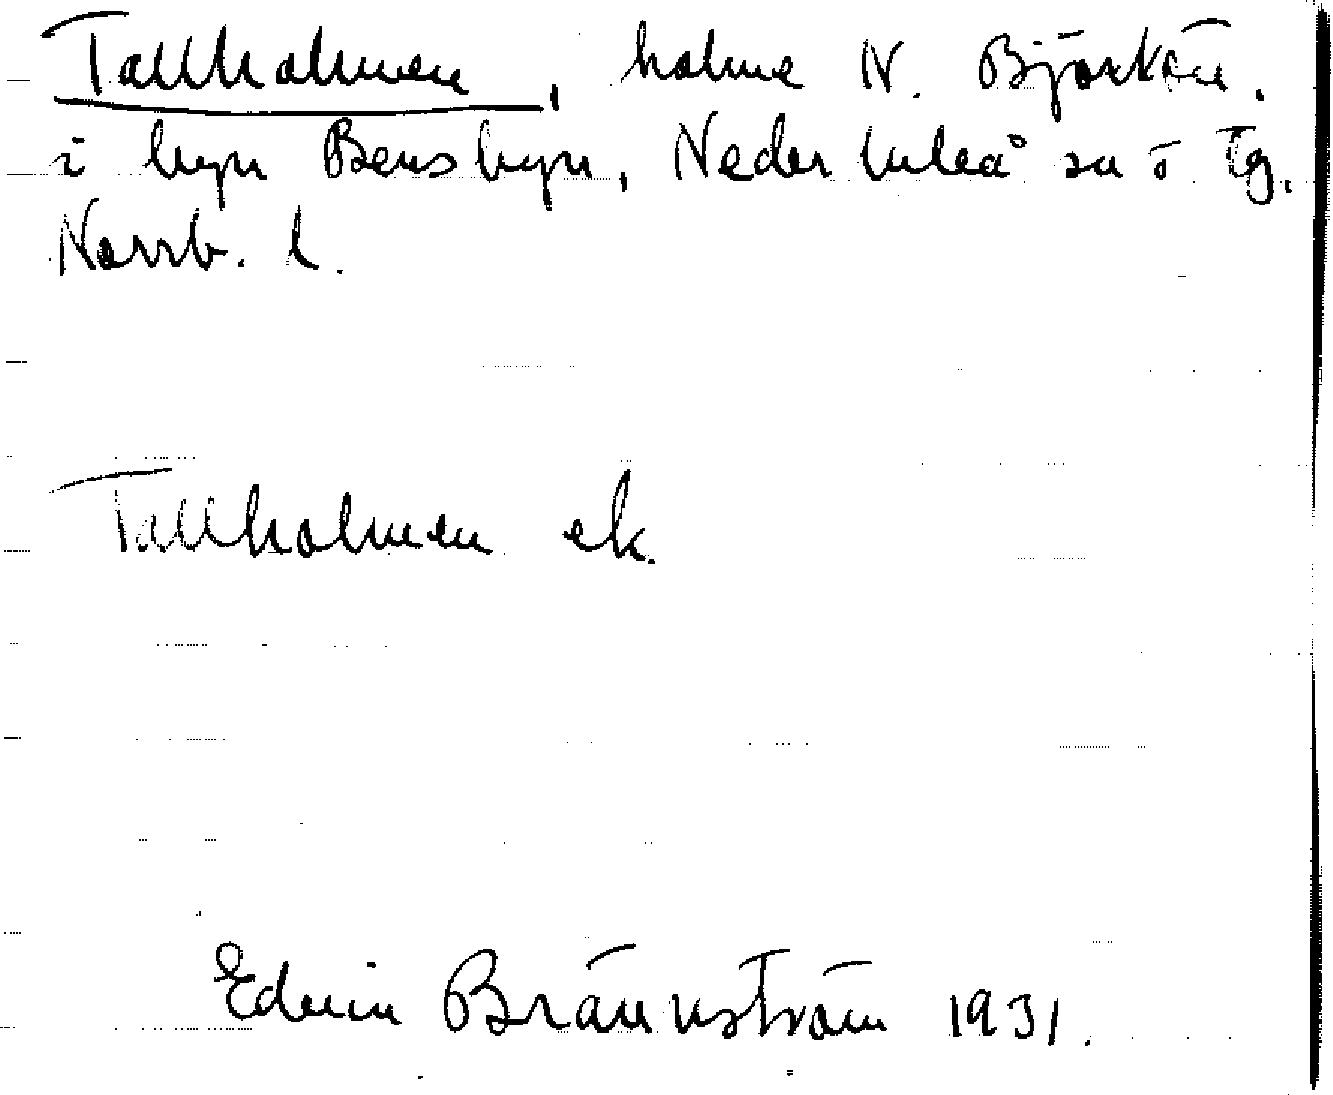 Tallholmen, holme N. Björkön.
i byn Bensbyn, Neder Luleå sn o tg.
Norrb. l.
Tallholmen ek.
Edvin Brännström 1931.